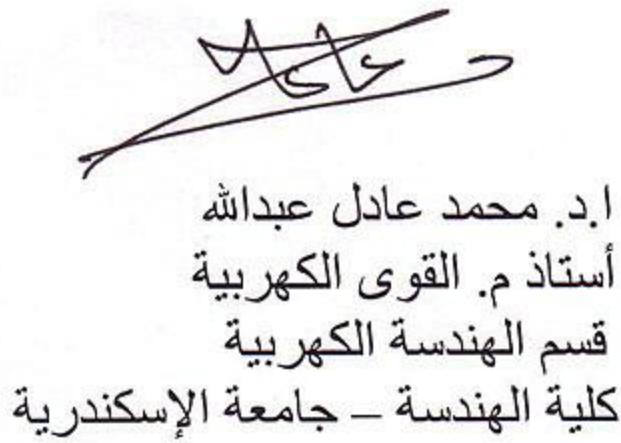 ا.د. محمد عادل عبدالله
أستاذ م. القوى الكهربية
قسم الهندسة الكهربية
كلية الهندسة – جامعة الإسكندرية